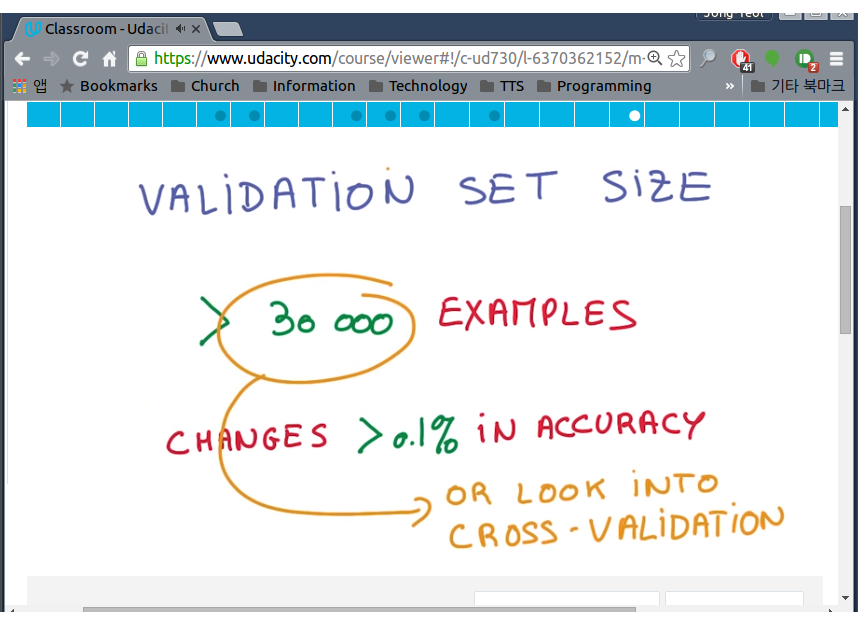 Jong Yeol
Classroom - Udacit
https://www.udacity.com/course/viewer#!/c-ud730/l-6370362152/m-
41
2
앱 Bookmarks Church Information Technology TTS Programming » 기타 북마크
VALiDATiON SET SiZE
> 30 000 EXAMPLES
CHANGES > 0.1% iN ACCURACY
OR LOOK iNTO
CROSS-VALiDATiON